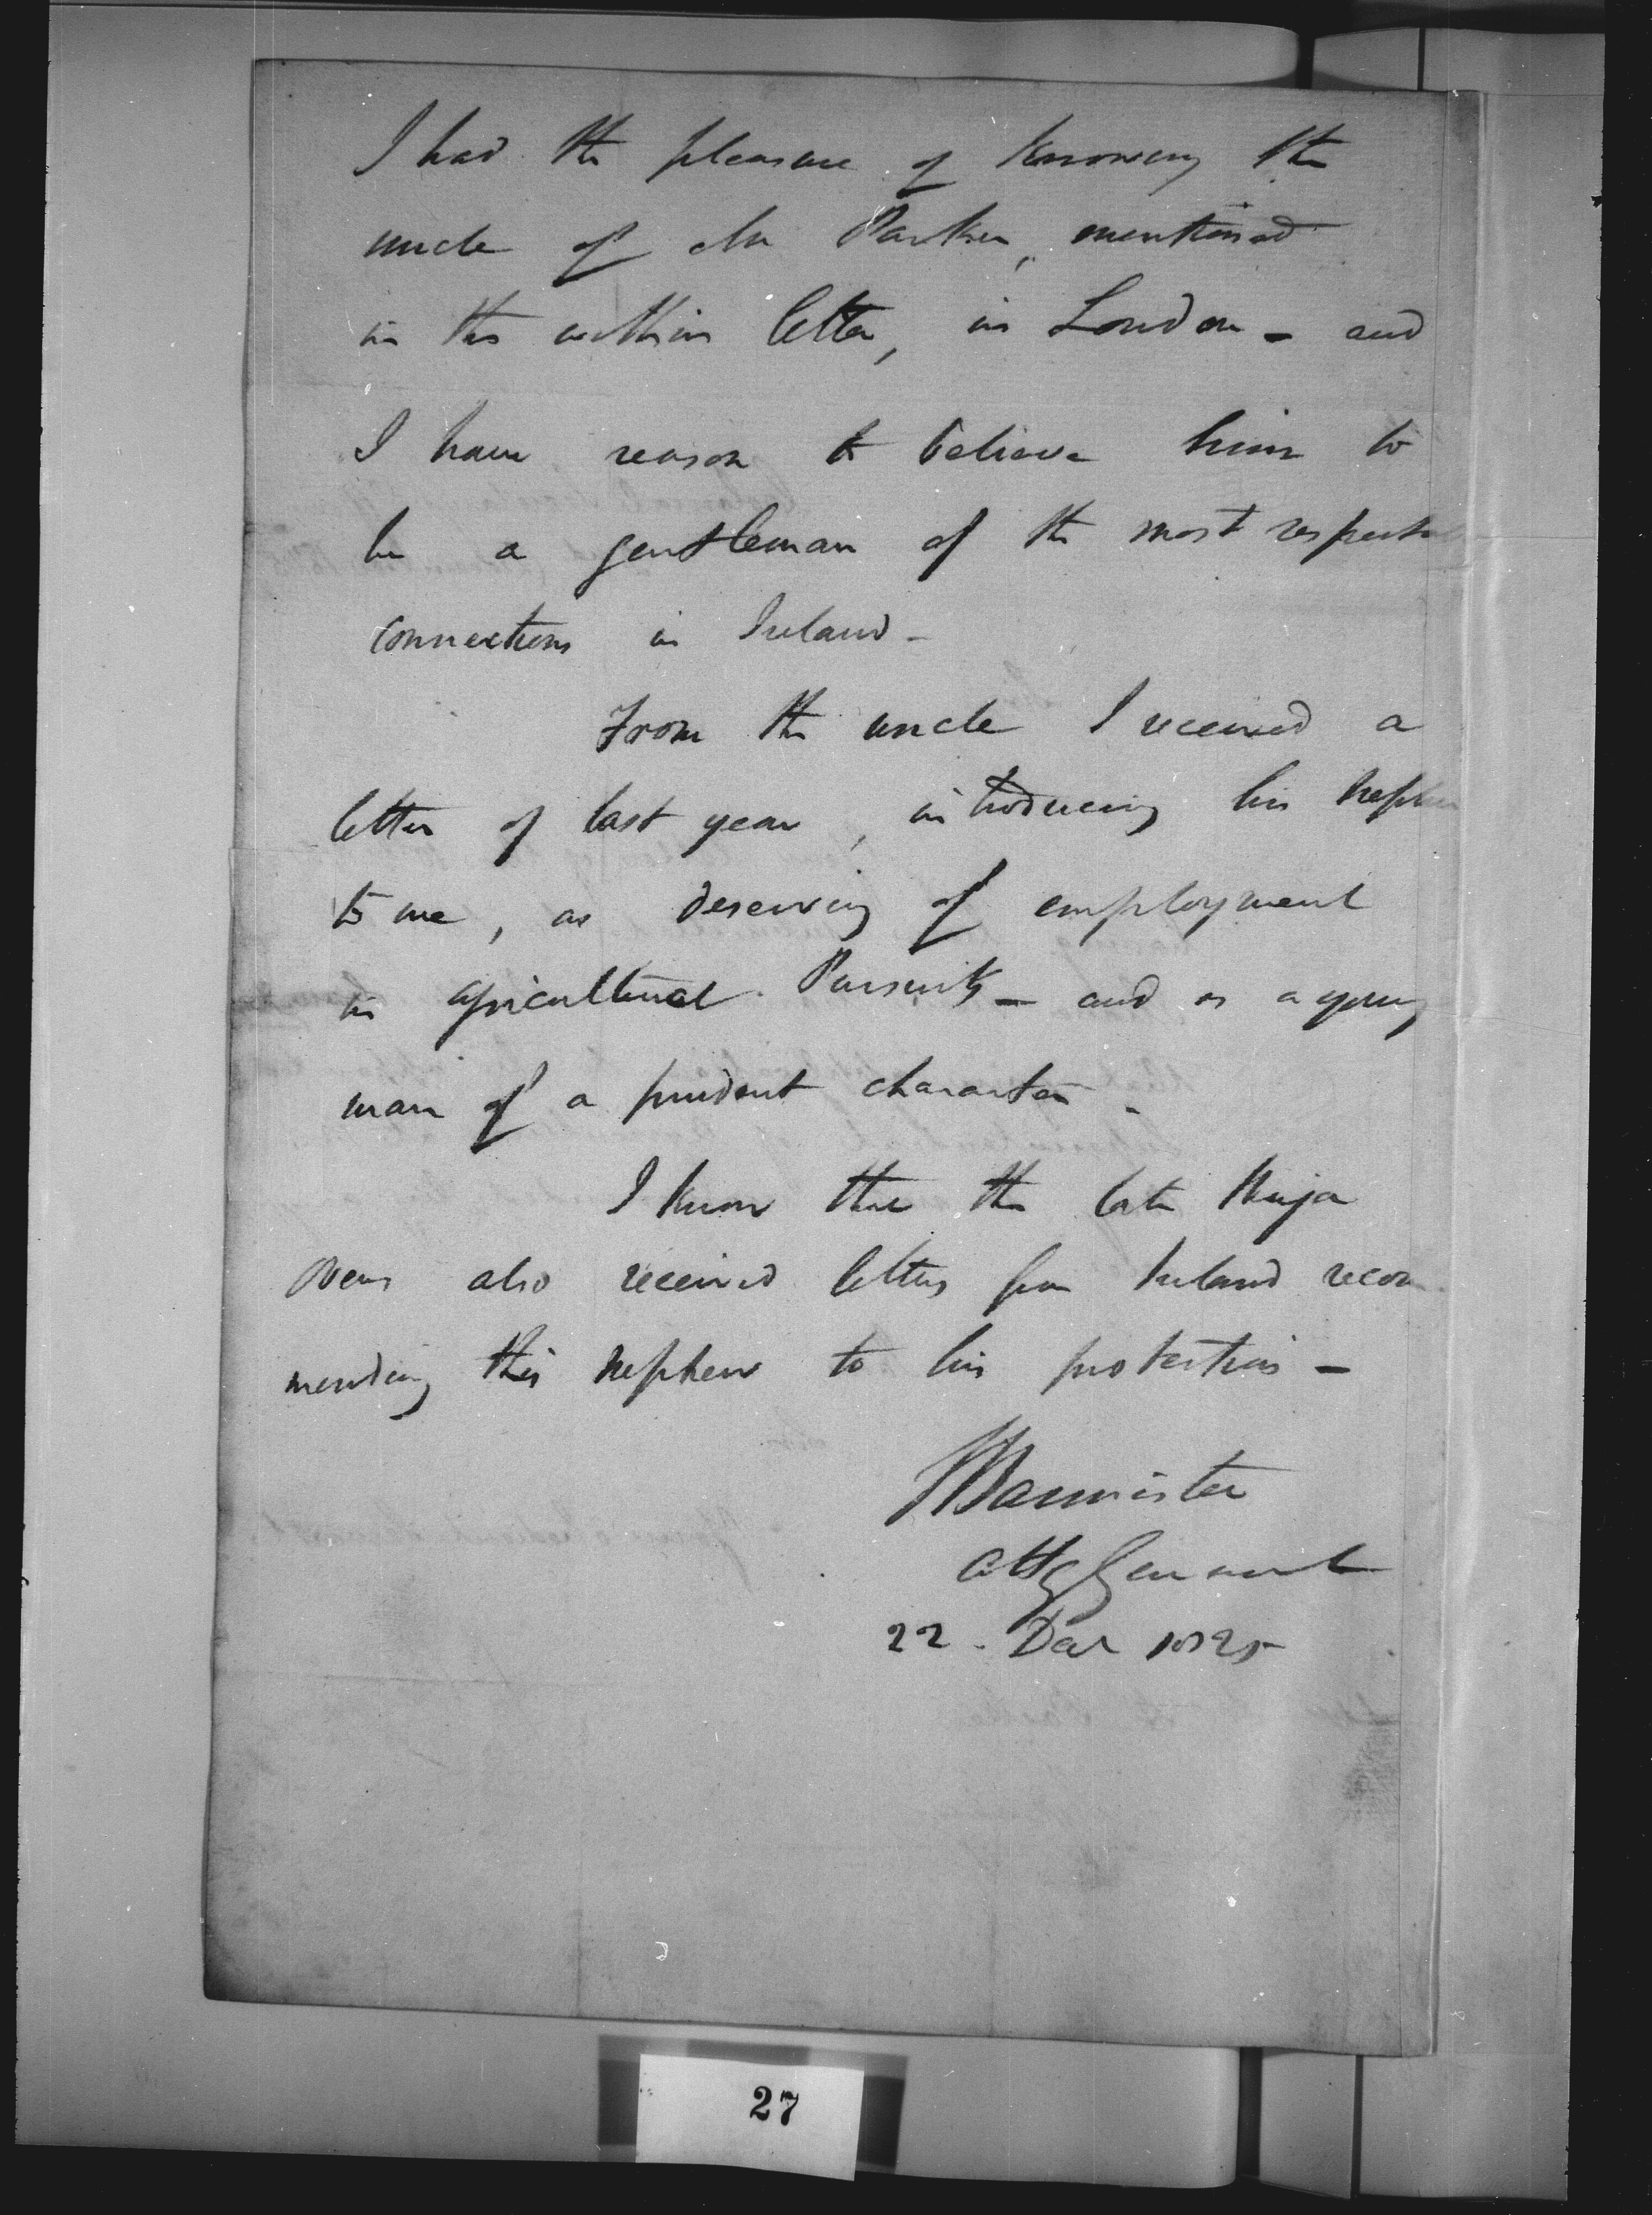 I had the pleasure of knowing the
uncle of Mr Parker, mentioned
in the within letter, in London - and
I have reason to believe him to
be a gentleman of the most respectable
connections in Ireland -
From the uncle I received a
letter of last year, introducing his nephew
to me, as deserving of employment
in agricultural Pursuits - and as a young
man of a prudent character -
I know that the late Major
Ovens also received letters from Ireland recom-
mending this nephew to his protection -
S Bannister
Atty General
22. Decr 1825
27